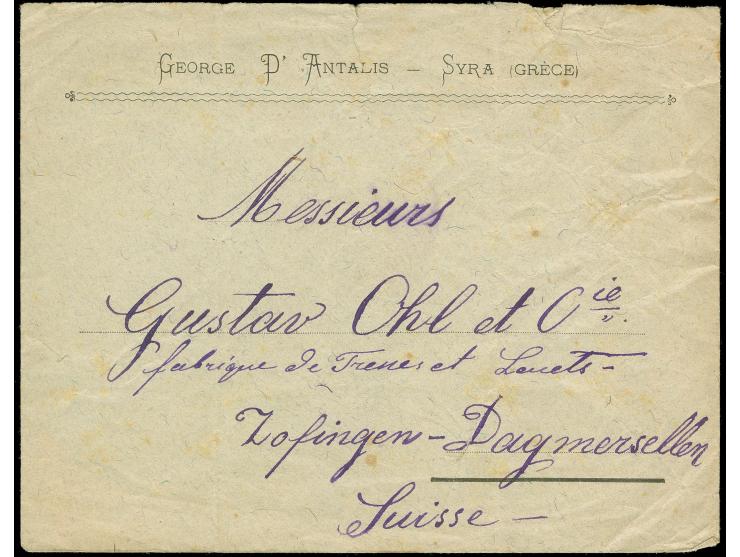 GEORGE D' ANTALIS – SYRA (GRÈCE)
Messieurs
Gustav Ohl et Cie.
fabrique de Tresses et Lacets –
Zofingen – Dagmersellen
Suisse –